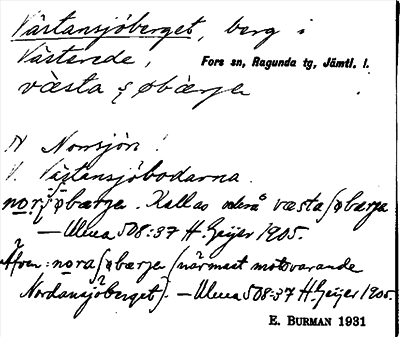 Västansjöberget, berg i
Västerede,
Fors sn, Ragunda tg, Jämtl. l.
væsta ʂøbærje
N Norrsjön.
V. Västansjöbodarna.
norʂøbærje. Kallas också væstaʃøbærje
— Ulma 508:37 H. Geijer 1905.
Även: noraʃøbærje (närmast motsvarande
Nordansjöberget). — Ulma 508:37 H Geijer 1905.
E. BURMAN 1931